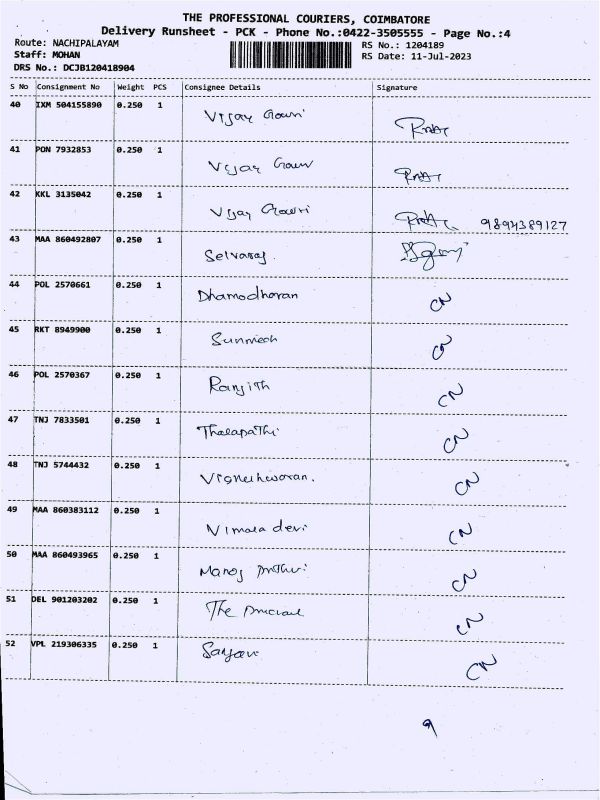 THE PROFESSIONAL COURIERS, COIMBATORE
Delivery Runsheet - PCK - Phone No.:0422-3505555 - Page No.:4
Route: NACHIPALAYAM RS No.: 1204189
Staff: MOHAN RS Date: 11-Jul-2023
DRS No.: DCJB120418904
S No Consignment No Weight PCS Consignee Details Signature
40 IXM 504155890 0.250 1 Vijay Gowri
41 PON 7932853 0.250 1 Vijay Gowri
42 KKL 3135042 0.250 1 Vijay Gowri 9894389127
43 MAA 860492807 0.250 1 Selvaraj
44 POL 2570661 0.250 1 Dhamodharan CN
45 RKT 8949900 0.250 1 CN
46 POL 2570367 0.250 1 Ranjith CN
47 TNJ 7833501 0.250 1 Thalapathi CN
48 TNJ 5744432 0.250 1 Vigneshwaran. CN
49 MAA 860383112 0.250 1 Vimala devi CN
50 MAA 860493965 0.250 1 Manoj CN
51 DEL 901203202 0.250 1 The CN
52 VPL 219306335 0.250 1 CN
9